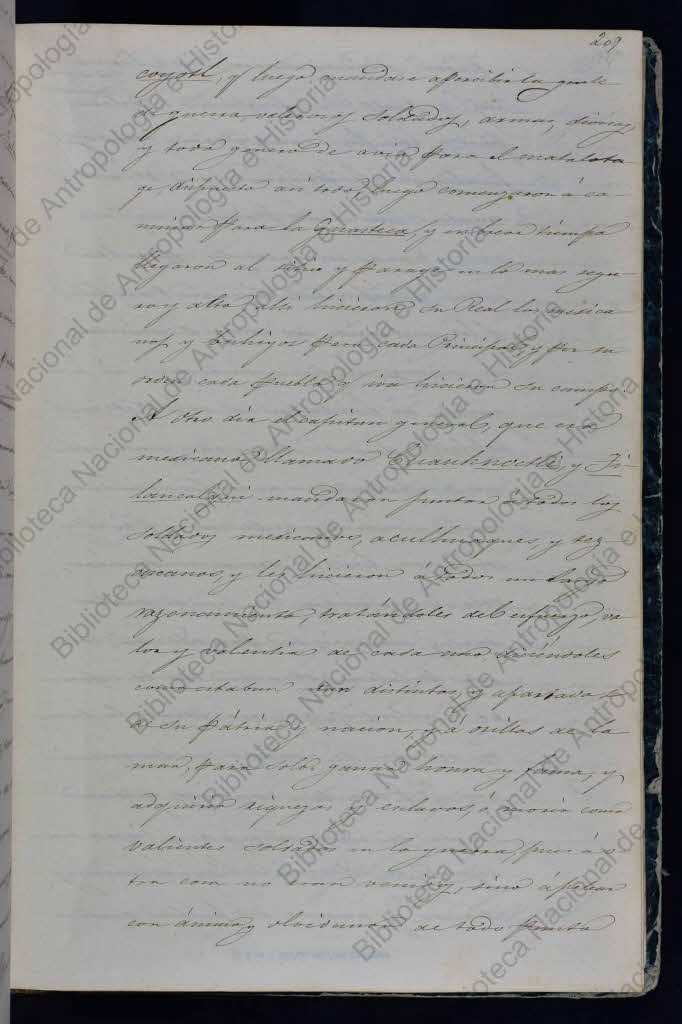 209
coyotl, y luego mandase apercibir la gente
de guerra valerosos soldados, armas, divisas,
y todo genero de avio para el matalota
ge, dispuesto asi todo luego comenzaron á ca
minar para la Guasteca, y en breve tiempo
llegaron al sitio y parage en lo mas segu
ro y alto alli hicieron su Real los mexica
nos, y buhiyos para cada Principal y por su
orden cada pueblo y hicieron su campo.
A otro dia el capitan general, que era
mexicano llamado Cuauhnoctli y Ti
lancalqui mandaron juntar á todos los
soldados mexicanos, aculhuaques, y tez
cucanos, y les hicieron á todos un largo
razonamiento, tratándoles del esfuerzo, va
lor y valentia de cada uno, diciéndoles
como estaban tan distintos, y apartados
de su pátria y nacion, y á orillas de la
mar, para solo ganar honra y fama, y
adquirir riquezas y esclavos, ó morir como
valientes soldados en la guerra, pues á o
tra cosa no eran venidos, sino á pelear
con ánimo, y olvidarse de todo punto
Biblioteca Nacional de Antropología e Historia